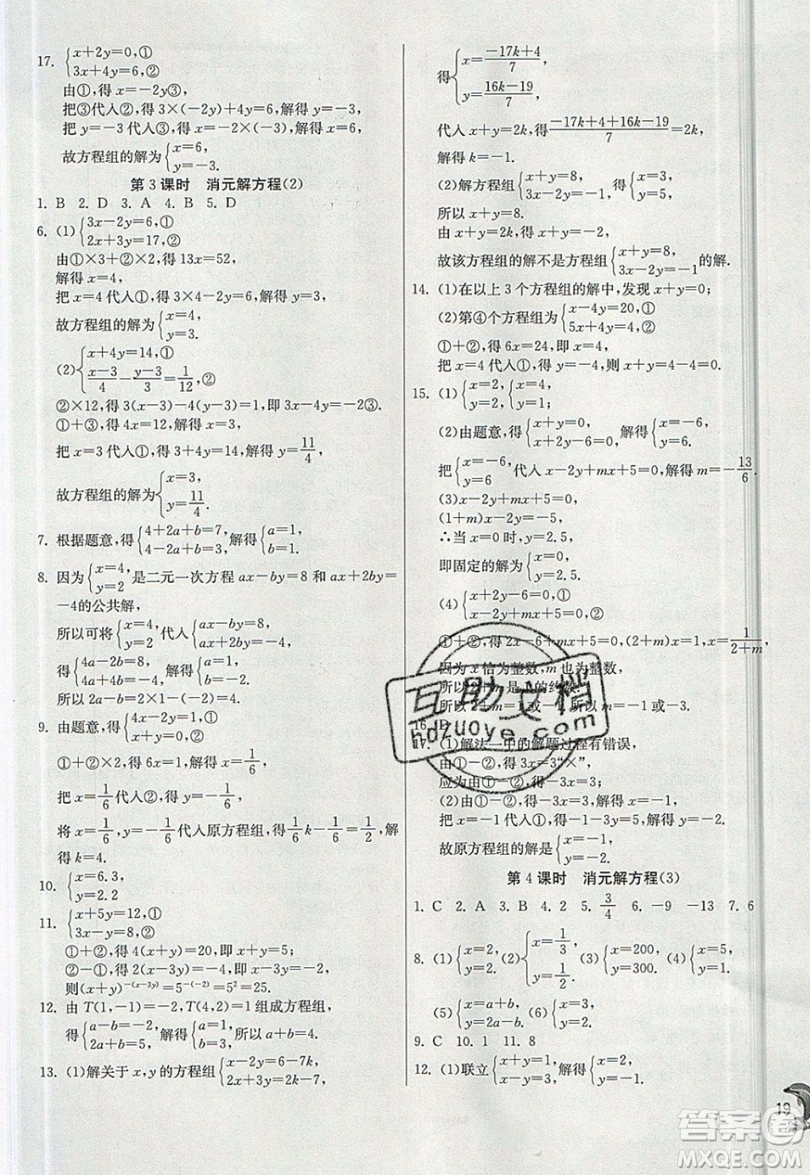 17. {x+2y=0,①
3x+4y=6,②
由①,得 x=-2y③,
把③代入②,得 3×(-2y)+4y=6,解得 y=-3,
把 y=-3 代入①,得 x=-2×(-3)=6,
故方程组的解为{x=6, y=-3.
第 3 课时 消元解方程(2)
1. B 2. D 3. A 4. B 5. D
6. (1){3x-2y=6,①
2x+3y=17,②
由①×3+②×2,得 13x=52,
解得 x=4,
把 x=4 代入①,得 3×4-2y=6,解得 y=3,
故方程组的解为{x=4, y=3.
(2){x+4y=14,①
(x-3)/4-(y-3)/3=1/12,②
②×12,得 3(x-3)-4(y-3)=1,即 3x-4y=-2③.
①+③,得 4x=12,解得 x=3,
把 x=3 代入①,得 3+4y=14,解得 y=11/4,
故方程组的解为{x=3, y=11/4.
7. 根据题意,得{4+2a+b=7, 4-2a+b=3,解得{a=1, b=1.
8. 因为{x=4, y=2是二元一次方程 ax-by=8 和 ax+2by=
-4的公共解,
所以可将{x=4, y=2代入{ax-by=8, ax+2by=-4,
得{4a-2b=8, 4a+4b=-4,解得{a=1, b=-2.
所以 2a-b=2×1-(-2)=4.
9. 由题意,得{4x-7y=1,① 2x+7y=0,②
①+②,得 6x=1,解得 x=1/6,
把 x=1/6代入②,得 2×1/6+y=0,解得 y=-1/6,
将 x=1/6,y=-1/6代入原方程组,得1/6k-1/6=1/2,解
得 k=4.
10. {x=6.3, y=2.2
11. {x+5y=12,①
3x-y=8,②
①+②,得 4(x+y)=20,即 x+y=5;
②-①,得 2(x-3y)=-4,即 x-3y=-2;
则(x+y)^-(x-3y)=5^-(-2)=5²=25.
12. 由 T(1,-1)=-2,T(4,2)=1组成方程组,
得{a-b=-2, 2a+b=5,解得{a=1, b=3,所以 a+b=4.
13. (1)解关于 x,y 的方程组{x-2y=6-7k, 2x+3y=2k-7,
得{x=(-17k+4)/7,
y=(16k-19)/7,
代入 x+y=2k,得(-17k+4+16k-19)/7=2k,
解得 k=-1.
(2)解方程组{x+y=8, 3x-y=16,得{x=6, y=2.
所以 x+y=8.
故该方程组的解不是方程组{x+y=8, 3x-y=16的解.
14. (1)在以上 3 个方程组的解中,发现 x+y=0;
(2)第④个方程组为{x-4y=20,① 5x+4y=4,②
①+②,得 6x=24,即 x=4,
把 x=4 代入①,得 y=-4,则 x+y=4-4=0.
15. (1){x=2, y=2,{x=4, y=1;
(2)由题意,得{x+y=0, x+2y=6,解得{x=-6, y=6,
把{x=-6, y=6代入 x-2y+mx=-5,解得 m=-13/6.
(3)x-2y+mx+5=0,
(1+m)x-2y=-5,
∴当 x=0 时,y=2.5,
即固定的解为{x=0, y=2.5.
(4){x+2y-6=0,① x-2y+mx+5=0,②
①+②,得 2x-6+mx+5=0,(2+m)x=1,x=1/(2+m),
因为 x 恰为整数,m也为整数,
17. (1)解法一中的解题过程有错误,
由①-②,得 3x=3“×”,
应为由①-②,得-3x=3;
(2)由①-②,得-3x=3,解得 x=-1,
把 x=-1代入①,得-1-3y=5,解得 y=-2.
故原方程组的解是{x=-1, y=-2.
第 4 课时 消元解方程(3)
1. C 2. A 3. B 4. 2 5. 3/4 6. -9 -13 7. 6
8. (1){x=2, y=2.(2){x=1/3, y=1/2.(3){x=200, y=300.(4){x=5, y=0.
(5){x=a+b, y=2a-b.(6){x=a, y=2a.
9. C 10. 1 11. 8
12. (1)联立{x+y=1, x-y=3,解得{x=2, y=-1.
19
互助文档
hdzuoye.com
答案圈
MXQE.COM